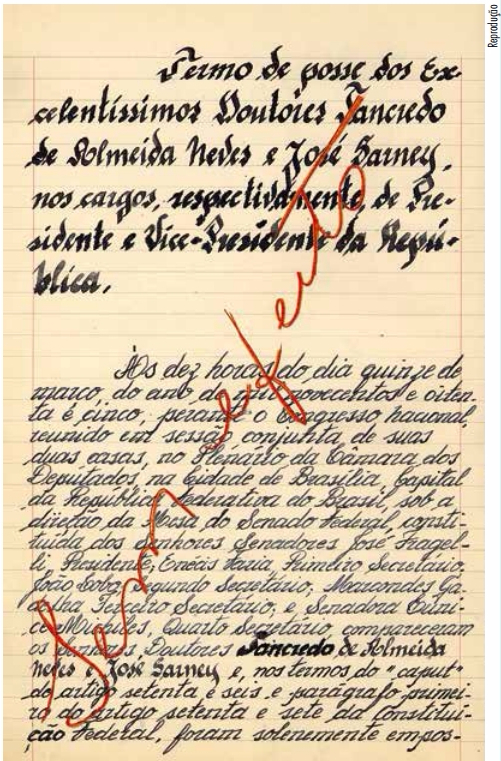 Reprodução
Termo de posse dos Ex-
celentíssimos Doutores Tancredo
de Almeida Neves e José Sarney,
nos cargos, respectivamente, de Pre-
sidente e Vice-Presidente da Repú-
blica.
Sem efeito
Às dez horas do dia quinze de
março, do ano de mil novecentos e oiten-
ta e cinco, perante o Congresso Nacional,
reunido em sessão conjunta de suas
duas casas, no Plenário da Câmara dos
Deputados, na Cidade de Brasília, Capital
da República Federativa do Brasil, sob a
direção da Mesa do Senado Federal, consti-
tuída dos Senhores Senadores José Fragel-
li, Presidente; Enéas Faria, Primeiro Secretário;
João Lobo, Segundo Secretário; Marcondes Ga-
delha Terceiro Secretário; e, Senadora Eunice
Michiles, Quarto Secretário, compareceram
os Senhores Doutores Tancredo de Almeida
Neves e José Sarney e, nos termos do "caput"
do artigo setenta e seis e parágrafo primei-
ro do artigo setenta e sete da Constitui-
ção Federal, foram solenemente empos-